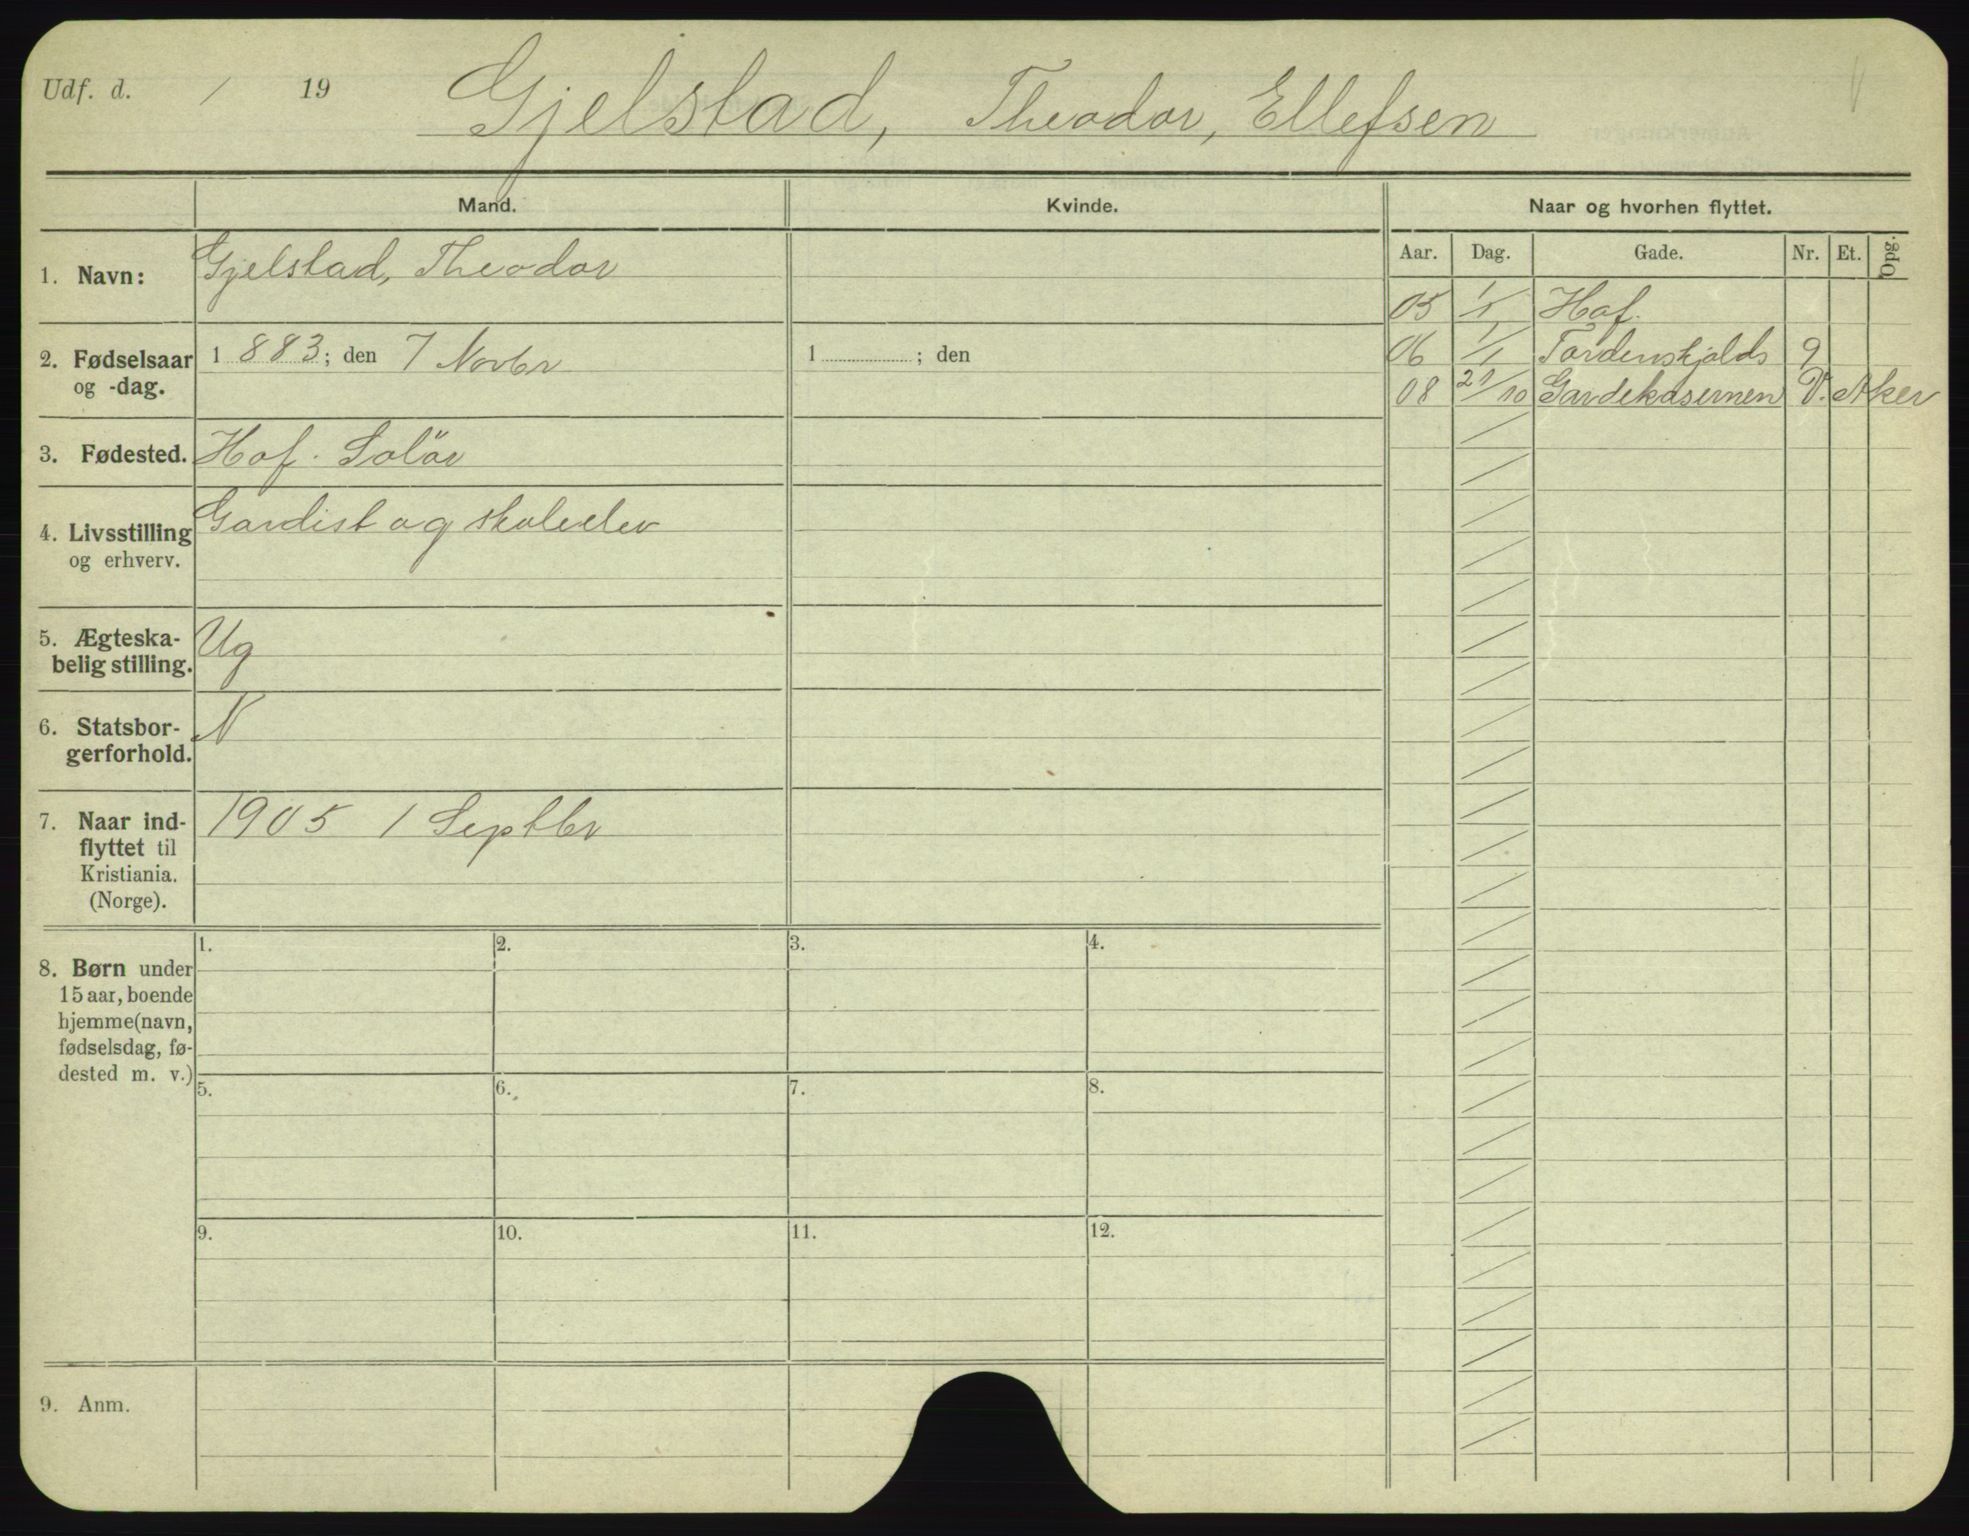 Udf. d. / 19 Gjelstad, Theodor, Ellefsen
Mand. Kvinde. Naar og hvorhen flyttet.
Aar. Dag. Gade. Nr. Et. Opg.
1. Navn: Gjelstad, Theodor
05 1/1 Hof.
2. Fødselsaar og -dag. 1 883; den 7 Novbr 1 ; den
06 1/1 Tordenskjolds 9
08 21/10 Gardekasernen V. Aker
3. Fødested. Hof. Solör
4. Livsstilling og erhverv. Gardist og skoleelev
5. Ægteska-
belig stilling. Ug
6. Statsbor-
gerforhold. N
7. Naar ind-
flyttet til
Kristiania.
(Norge). 1905 1 Septbr
8. Børn under
15 aar, boende
hjemme (navn,
fødselsdag, fø-
dested m. v.)
1. 2. 3. 4.
5. 6. 7. 8.
9. 10. 11. 12.
9. Anm.